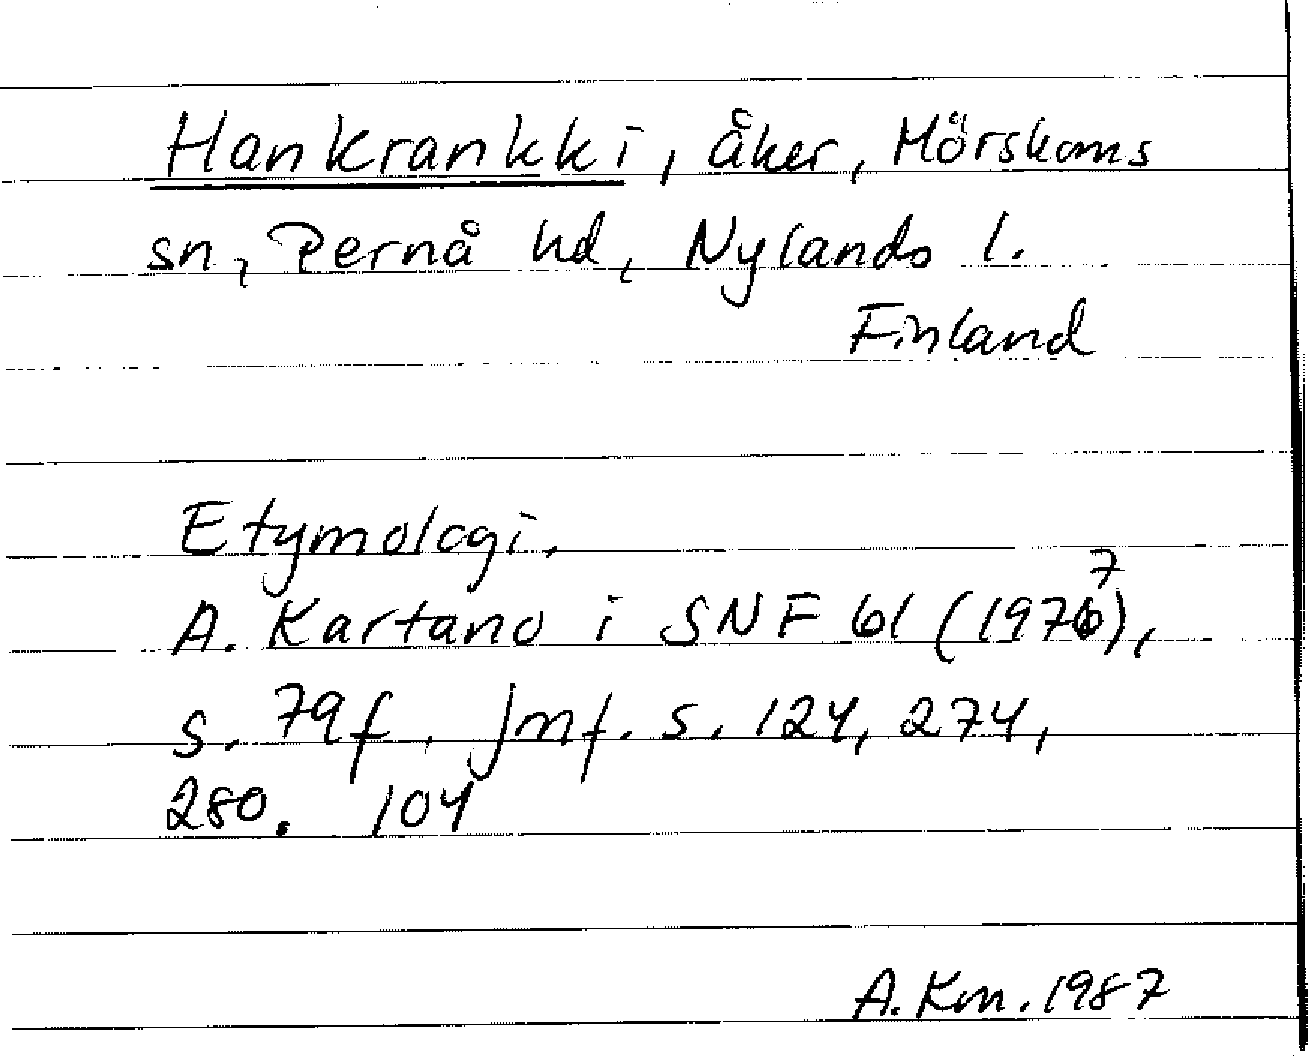 Hankrankki, åker, Mörskoms
sn, Pernå hd, Nylands l.
Finland
Etymologi.
A. Kartano i SNF 61 (1977),
s. 79f. Jmf. s. 124, 274,
280. 104
A. Km. 1987